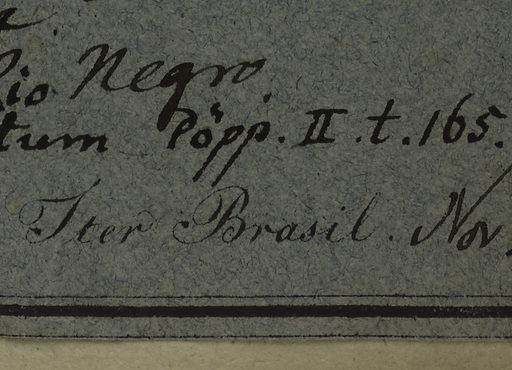 Rio Negro.
tum Pöpp. II. t. 165.
Iter Brasil. Nov